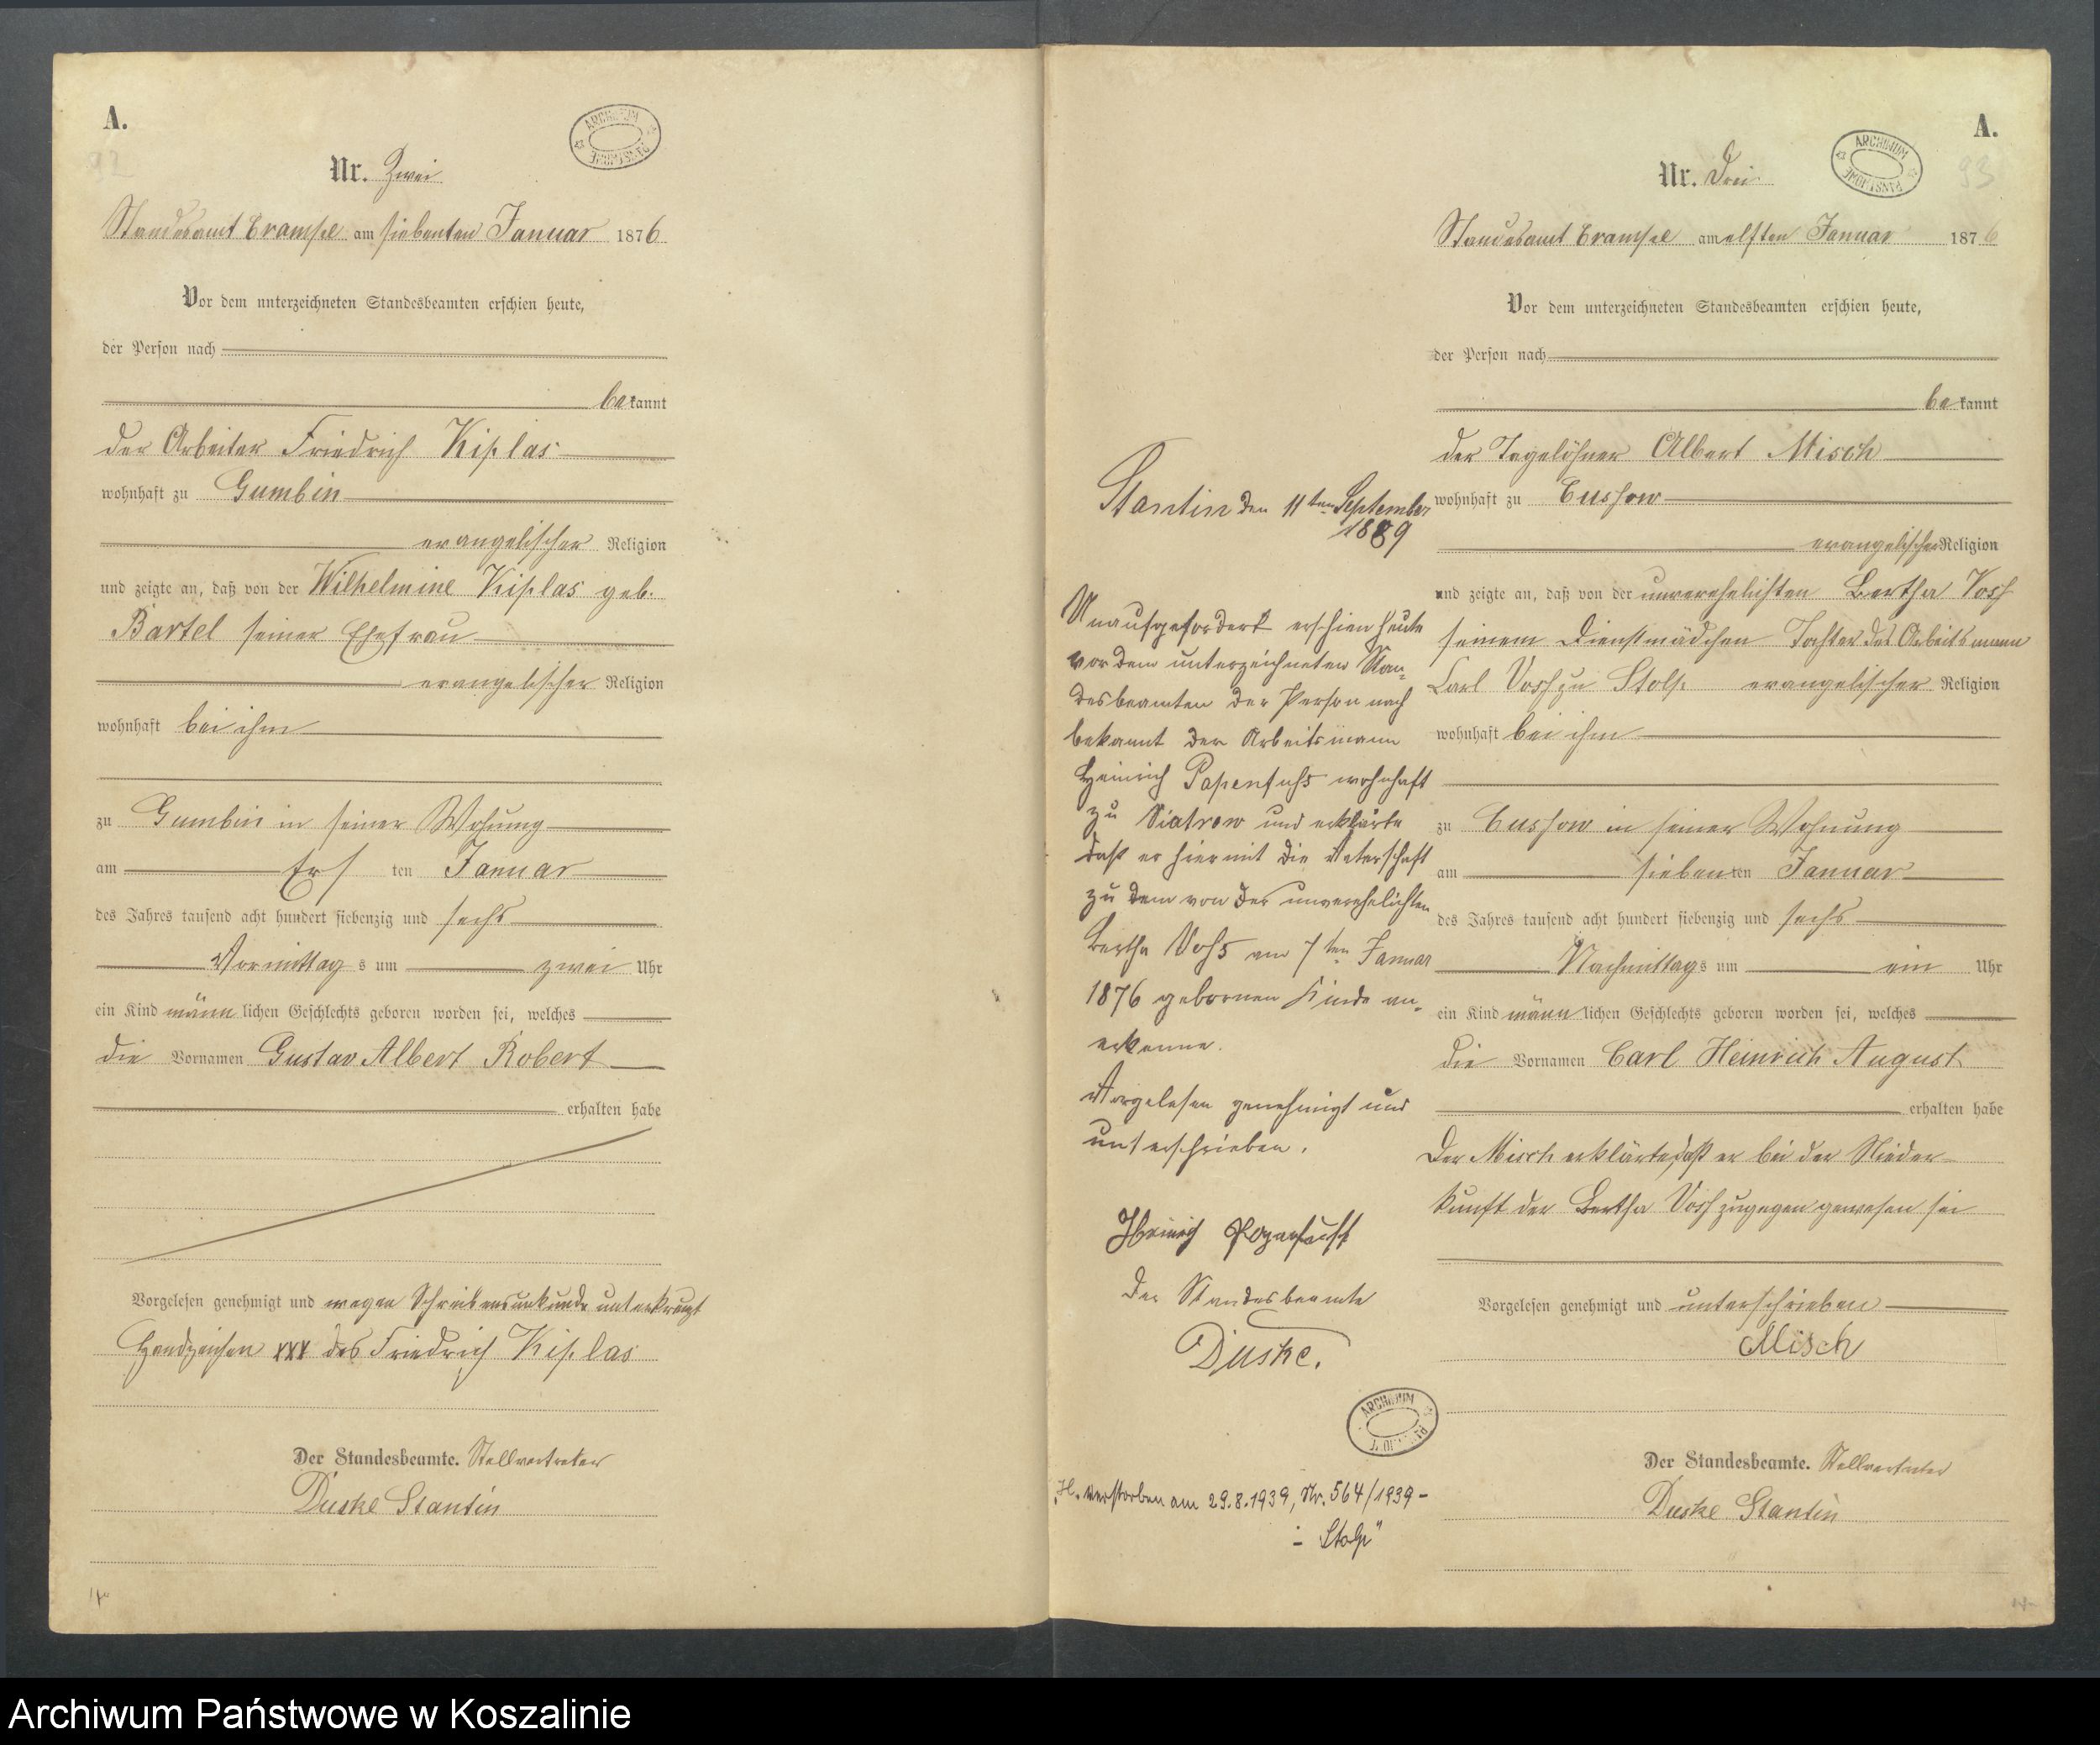 A.
92
Nr. Zwei
ARCHIWUM PAŃSTWOWE
Standesamt Crampe am siebenten Januar 1876.
Vor dem unterzeichneten Standesbeamten erschien heute,
der Person nach
bekannt
der Arbeiter Friedrich Kiplas
wohnhaft zu Gumbin
evangelischer Religion
und zeigte an, daß von der Wilhelmine Kiplas geb.
Bartel seiner Ehefrau
evangelischer Religion
wohnhaft bei ihm
zu Gumbin in seiner Wohung
am Ersten Januar
des Jahres tausend acht hundert siebenzig und sechs
Vormittags um zwei Uhr
ein Kind männlichen Geschlechts geboren worden sei, welches
die Vornamen Gustav Albert Robert
erhalten habe
Vorgelesen genehmigt und wegen Schreibensunkunde unterkreuzt
Handzeichen XXX des Friedrich Kiplas
Der Standesbeamte. Stellvertreter
Duske Stantin
A.
93
Nr. Drei
ARCHIWUM PAŃSTWOWE
Standesamt Crampe am elften Januar 1876
Vor dem unterzeichneten Standesbeamten erschien heute,
der Person nach
bekannt
der Tagelöhner Albert Misch
wohnhaft zu Cussow
evangelischer Religion
und zeigte an, daß von der unverehelichten Bertha Voss
seinem Dienstmädchen Tochter des Arbeitsmann
Carl Voss zu Stolp evangelischer Religion
wohnhaft bei ihm
zu Cussow in seiner Wohnung
am siebenten Januar
des Jahres tausend acht hundert siebenzig und sechs
Nachmittags um ein Uhr
ein Kind männlichen Geschlechts geboren worden sei, welches
die Vornamen Carl Heinrich August
erhalten habe
Der Misch erklärte, daß er bei der Nieder-
kunft der Bertha Voss zugegen gewesen sei
Vorgelesen genehmigt und unterschrieben
Misch
Der Standesbeamte. Stellvertreter
Duske Stantin
Stantin den 11ten September
1889
Unaufgefordert erschien heute
vor dem unterzeichneten Stan-
desbeamten der Person nach
bekannt der Arbeitsmann
Heinrich Papenfuhs wohnhaft
zu und erklärte
daß er hiermit die Vaterschaft
zu dem von der unverehelichten
Bertha Vohs am 7ten Januar
1876 gebornen Kinde an-
erkenne.
Vorgelesen genehmigt und
unterschrieben.
Heinrich Papenfuß
Der Standesbeamte
Duske.
ARCHIWUM
„H. verstorben am 29.8.1939, Nr. 564/1939 -
- Stolp"
Archiwum Państwowe w Koszalinie